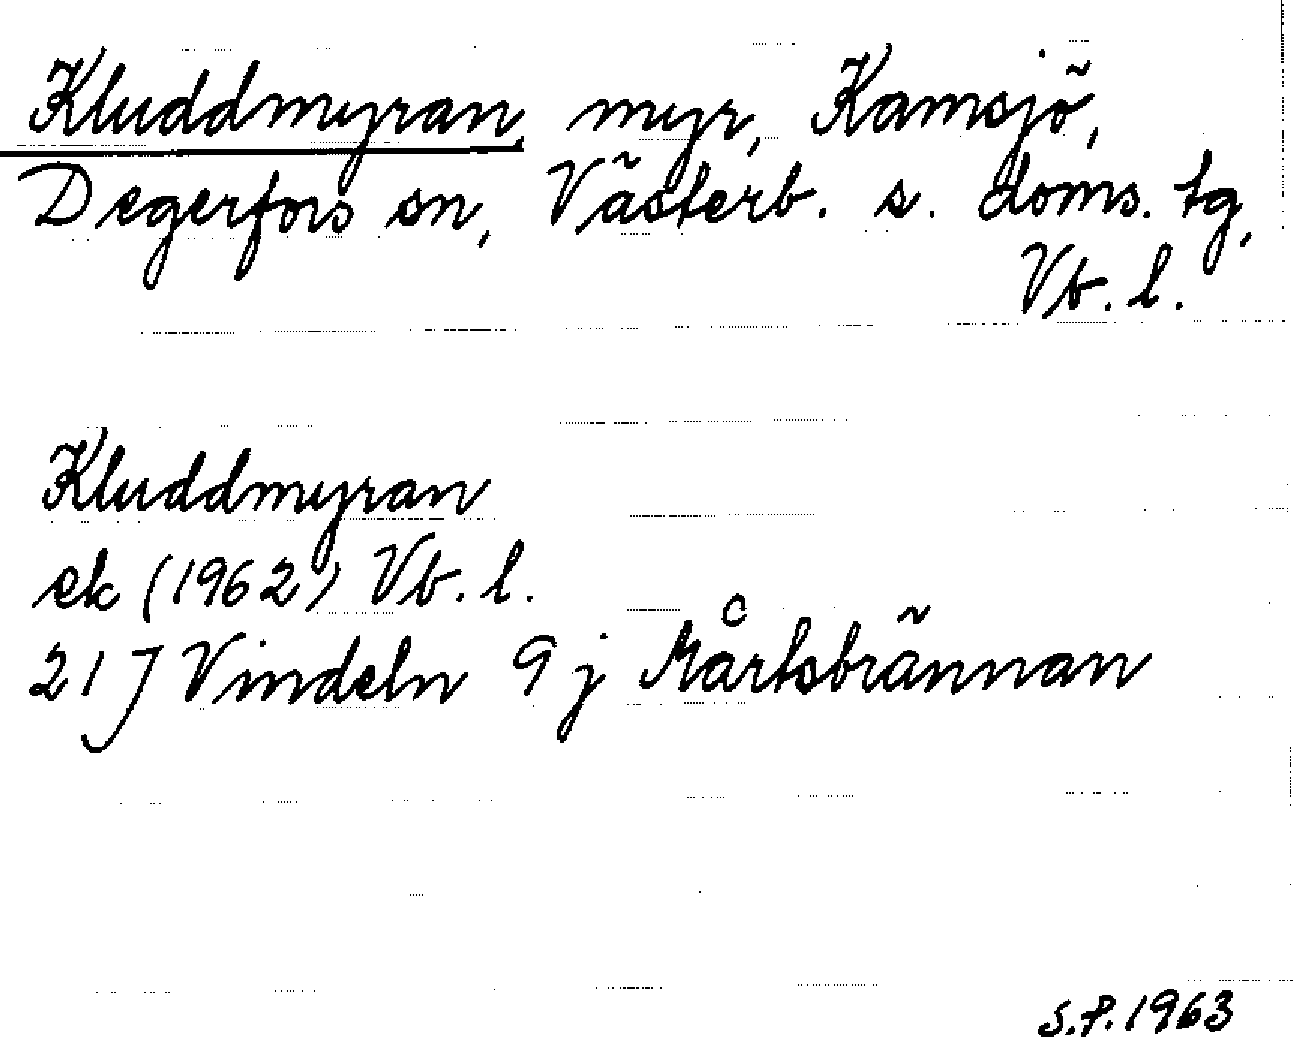 Kluddmyran, myr, Kamsjö,
Degerfors sn, Västerb. s. doms. tg,
Vb. l.
Kluddmyran
ek (1962) Vb. l.
21 J Vindeln 9 j Mårtsbrännan
S.P. 1963